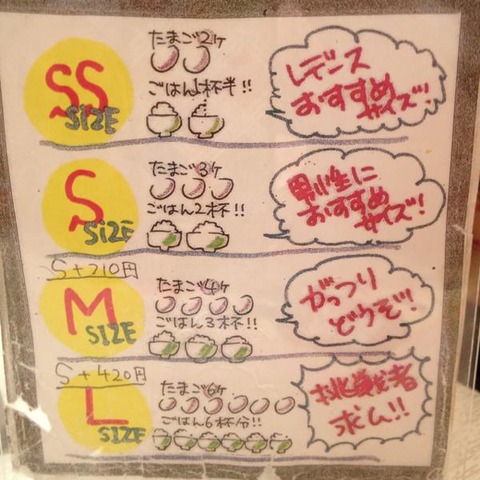 SS
SIZE
たまご2ヶ
ごはん1杯半!!
レディース
おすすめ
サイズ!!
S
SIZE
たまご3ヶ
ごはん2杯!!
男性に
おすすめ
サイズ!
S+210円
M
SIZE
たまご4ヶ
ごはん3杯!!
がっつり
どうぞ!
S+420円
L
SIZE
たまご6ヶ
ごはん6杯分!!
挑戦者
求ム!!